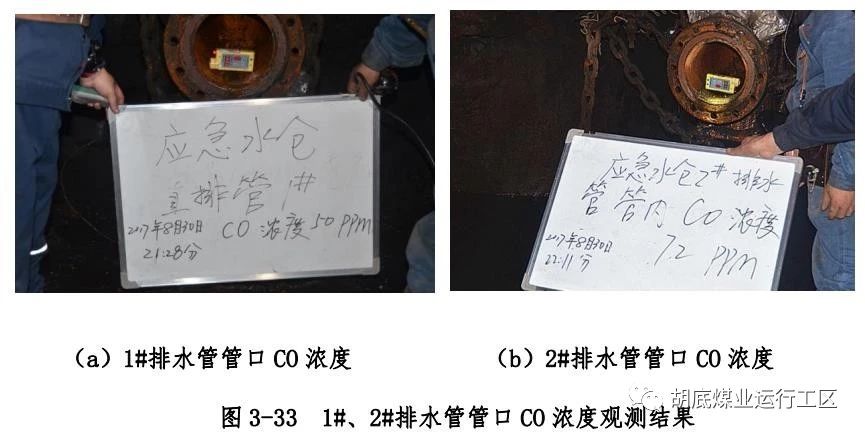 应急水仓
直排管1#
2017年8月30日 CO浓度50PPM
21:28分
应急水仓2#排水
管管内CO浓度
2017年8月30日 72 PPM
22:11分
（a）1#排水管管口 CO 浓度
（b）2#排水管管口 CO 浓度
图 3-33 1#、2#排水管管口 CO 浓度观测结果
胡底煤业运行工区